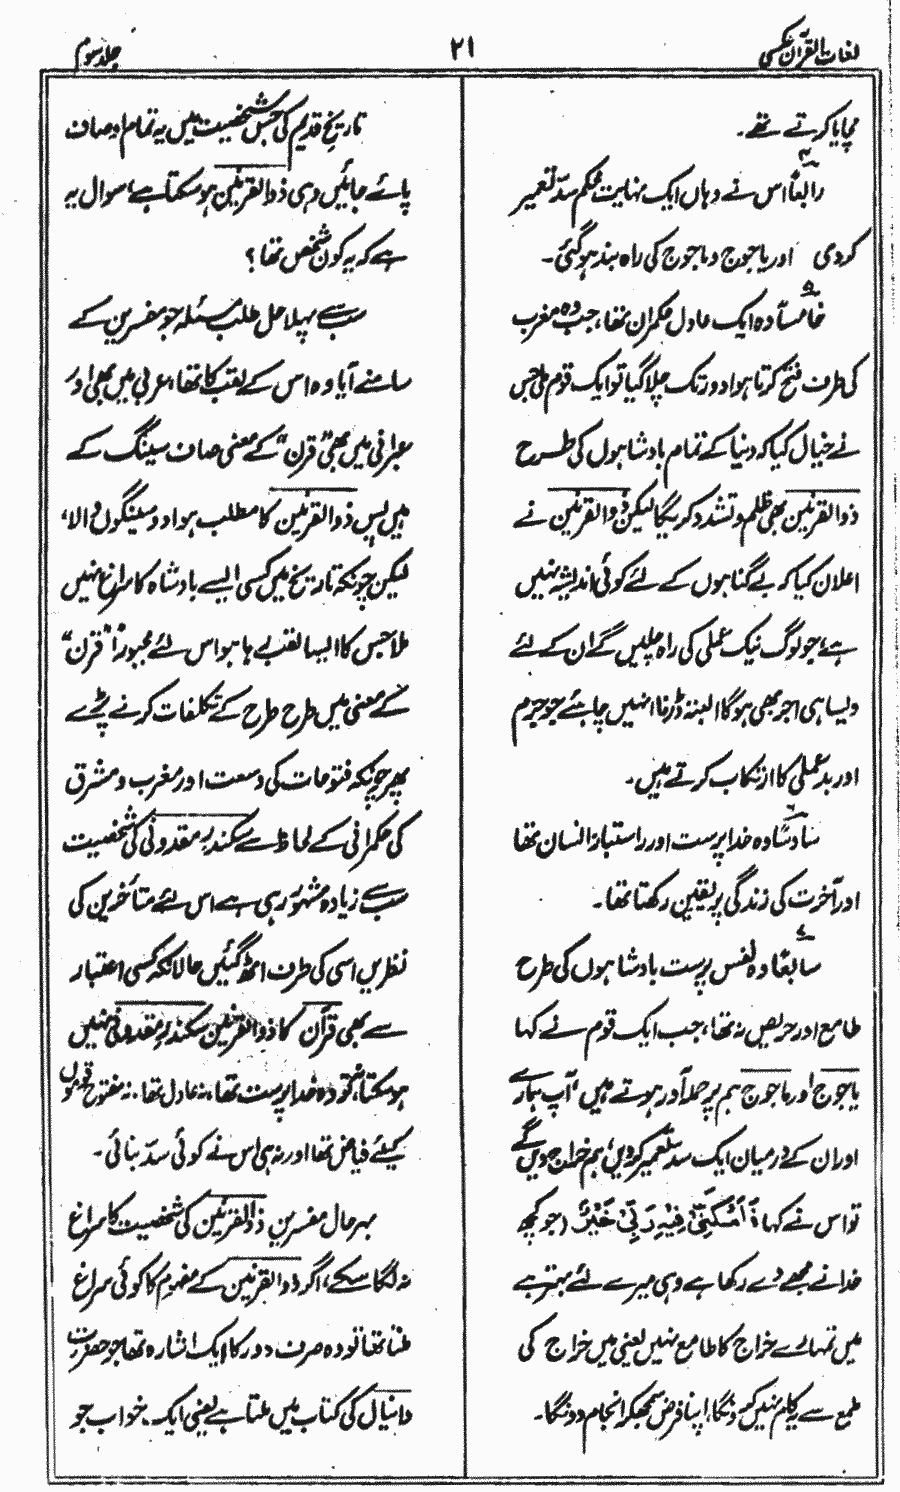 لغات القرآن عکسی
۲۱
جلد سوم
مچایا کرتے تھے۔
رابعًا اس نے وہاں ایک نہایت محکم سدّ تعمیر
کر دی اور یاجوج و ماجوج کی راہ بند ہو گئی۔
خامسًا وہ ایک عادل حکمران تھا، جب وہ مغرب
کی طرف فتح کرتا ہوا دور تک چلا گیا تو ایک قوم ملی جس
نے خیال کیا کہ دنیا کے تمام بادشاہوں کی طرح
ذوالقرنین بھی ظلم و تشدد کریگا لیکن ذوالقرنین نے
اعلان کیا کہ بے گناہوں کے لئے کوئی اندیشہ نہیں
ہے، جو لوگ نیک عملی کی راہ چلیں گے ان کے لئے
ویسا ہی اجر بھی ہوگا البتہ ڈرنا انہیں چاہئے جو جرم
اور بد عملی کا ارتکاب کرتے ہیں۔
سادسًا وہ خدا پرست اور راستباز انسان تھا
اور آخرت کی زندگی پر یقین رکھتا تھا۔
سابعًا وہ نفس پرست بادشاہوں کی طرح
طامع اور حریص نہ تھا، جب ایک قوم نے کہا
یاجوج اور ماجوج ہم پر حملہ آور ہوتے ہیں، آپ ہمارے
اور ان کے درمیان ایک سد تعمیر کر دیں، ہم خراج دیں گے
تو اس نے کہا مَا مَكَّنِّيْ فِيْهِ رَبِّيْ خَيْرٌ (جو کچھ
خدا نے مجھے دے رکھا ہے وہی میرے لئے بہتر ہے
میں تمہارے خراج کا طامع نہیں یعنی میں خراج کی
طمع سے یہ کام نہیں کرونگا، اپنا فرض سمجھکر انجام دونگا۔
تاریخ قدیم کی جس شخصیت میں یہ تمام اوصاف
پائے جائیں وہی ذوالقرنین ہو سکتا ہے، سوال یہ
ہے کہ یہ کون شخص تھا؟
سب سے پہلا حل طلب مسئلہ جو مفسرین کے
سامنے آیا وہ اس کے لقب کا تھا، عربی میں بھی اور
عبرانی میں بھی "قرن" کے معنی صاف سینگ کے
ہیں پس ذوالقرنین کا مطلب ہوا دو سینگوں والا،
لیکن چونکہ تاریخ میں کسی ایسے بادشاہ کا سراغ نہیں
ملا جس کا ایسا لقب رہا ہو اس لئے مجبورًا "قرن"
کے معنی میں طرح طرح کے تکلفات کرنے پڑے
پھر چونکہ فتوحات کی وسعت اور مغرب و مشرق
کی حکمرانی کے لحاظ سے سکندر مقدونی کی شخصیت
سب سے زیادہ مشہور رہی ہے اس لئے متأخرین کی
نظریں اسی کی طرف اٹھ گئیں حالانکہ کسی اعتبار
سے بھی قرآن کا ذوالقرنین سکندر مقدونی نہیں
ہو سکتا، نہ تو وہ خدا پرست تھا، نہ عادل تھا، نہ مفتوح قوموں
کیلئے فیاض تھا اور نہ ہی اس نے کوئی سدّ بنائی۔
بہرحال مفسرین ذوالقرنین کی شخصیت کا سراغ
نہ لگا سکے، اگر ذوالقرنین کے مفہوم کا کوئی سراغ
ملتا تھا تو وہ صرف دور کا ایک اشارہ تھا جو حضرت
دانیال کی کتاب میں ملتا ہے یعنی ایک خواب جو